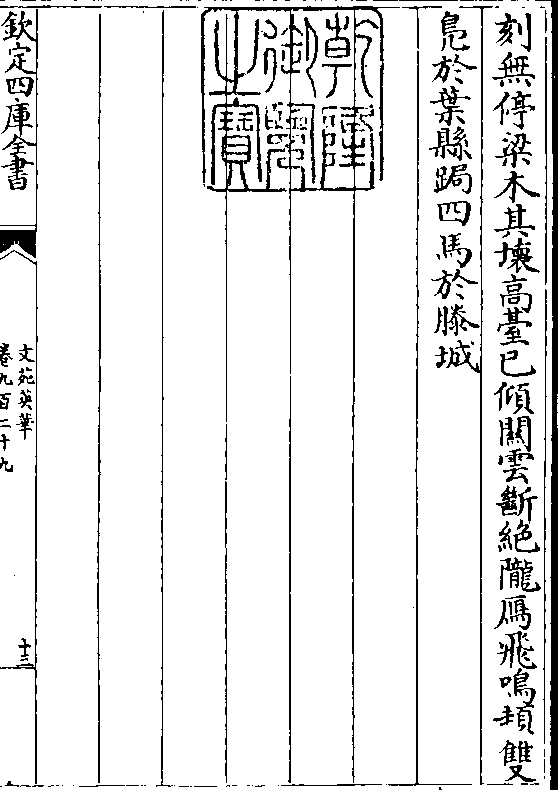 刻無停梁木其壞高臺已傾關雲斷絕隴鴈飛鳴頓雙
鳧於葉縣跼四馬於滕城
乾隆御覽之寶
欽定四庫全書
文苑英華
卷九百二十九
十三